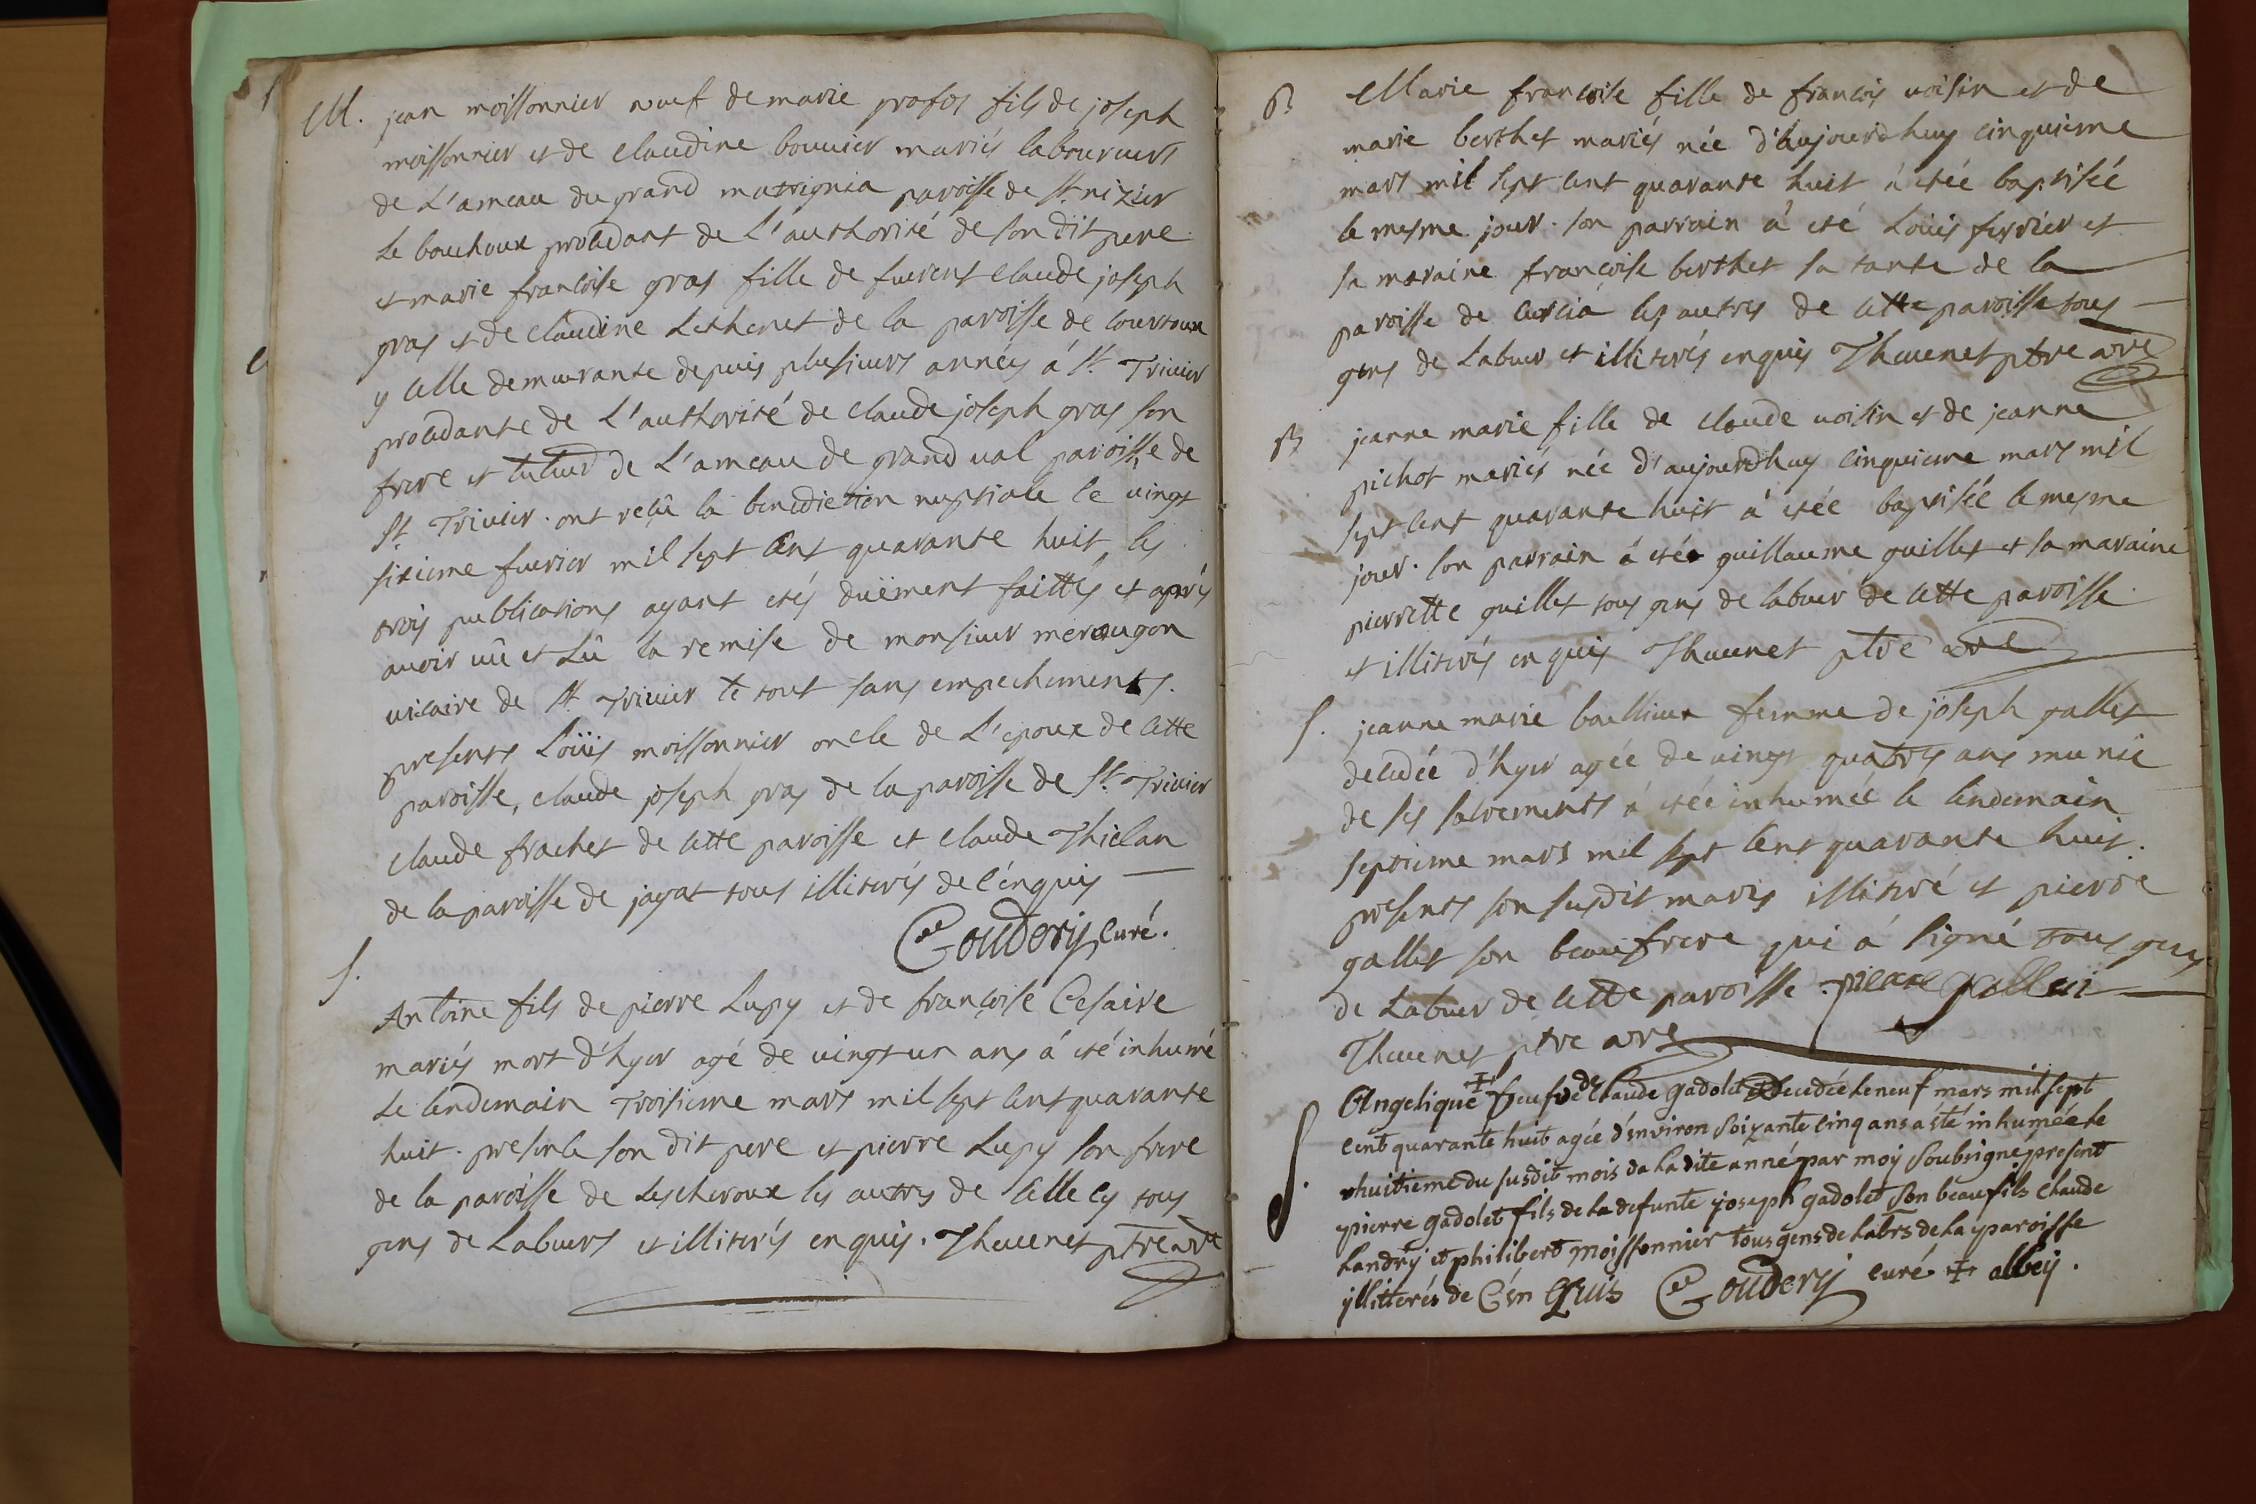 M. jean moissonnier veuf de marie profos fils de joseph
moissonnier et de claudine bouvier mariés laboureurs
de L'ameau du grand matrignia paroisse de St. nizier
Le bouchoux procedant de L'authorité de son dit pere
et marie francoise gras fille de fuerent claude joseph
gras et de claudine Lethenet de la paroisse de Courtoux
y celle demeurante depuis plusieurs annéés á St. Trivier
procedante de L'authorité de claude joseph gras son
frere et tuteur de L'ameau de grand val paroisse de
St. Trivier. ont reçû la benediction nuptiale le vingt
sixieme fuvrier mil sept cent quarante huit, les
trois publications ayant etés düement faittés et aprés
avoir vû et Lû la remise de monsieur meraugon
vicaire de St. Trivier le tout sans empechements.
presents Loüis moissonnier oncle de L'epoux de cette
paroisse, claude joseph gras de la paroisse de St. Trivier
claude frachet de cette paroisse et claude Thielan
de la paroisse de jayat tous illiterés de c'énquis
Gouderj Curé.
S.
Antoine fils de pierre Lupy et de francoise Cesaire
mariés mort d'hyer agé de vingt un ans á eté inhumé
Le lendemain Troisieme mars mil sept cent quarante
huit. presente son dit pere et pierre Lupy son frere
de la paroisse de Lescheroux les autres de celle cy tous
gens de Labuers et illiterés enquis. Thevenet ptre avre
B. Marie francoise fille de francois voisin et de
marie berthet mariés née d'hujourdhuy cinquieme
mars mil sept cent quarante huit á etée baptisée
le mesme jour. son parrain á eté Loüis ferrier et
sa maraine francoise berthet sa tante de la
paroisse de curcia les autres de cette paroisse tous
gens de Labuer et illiterés enquis Thevenet ptre avre
B. jeanne marie fille de claude voisin et de jeanne
pichot mariés née d'aujourdhuy cinquieme mars mil
sept cent quarante huit á etée baptisée le mesme
jour. son parrain á eté guillaume guillet et sa maraine
pierrette guillet tous gens de labuer de cette paroisse
et illiterés enquis Thevenet ptre avre
S. jeanne marie baillieux femme de joseph gallet
decedée d'hyer agée de vingt quatres ans munie
de ses sacrements á etée inhumée le lendemain
septieme mars mil sept cent quarante huit.
presents son susdit maris illiteré et pierre
gallet son beaufrere qui á signé tous gens
de Labuer de cette paroisse. pierre gallet
Thevenet ptre avre
S. Angelique ‡ veufve de Claude gadolet decedée Le neuf mars mil sept
cent quarante huit agée d'énviron soixante cinq ans a ésté inhumée le
huitieme du susdit mois de La dite anné par moÿ soubsigné présent
pierre gadolet fils de La defunte joseph gadolet son beaufils Claude
Landrÿ et philibert moissonnier tous gens de Labrs de La paroisse
jllitterés de C'énquis Gouderj curé ‡ albeÿ.